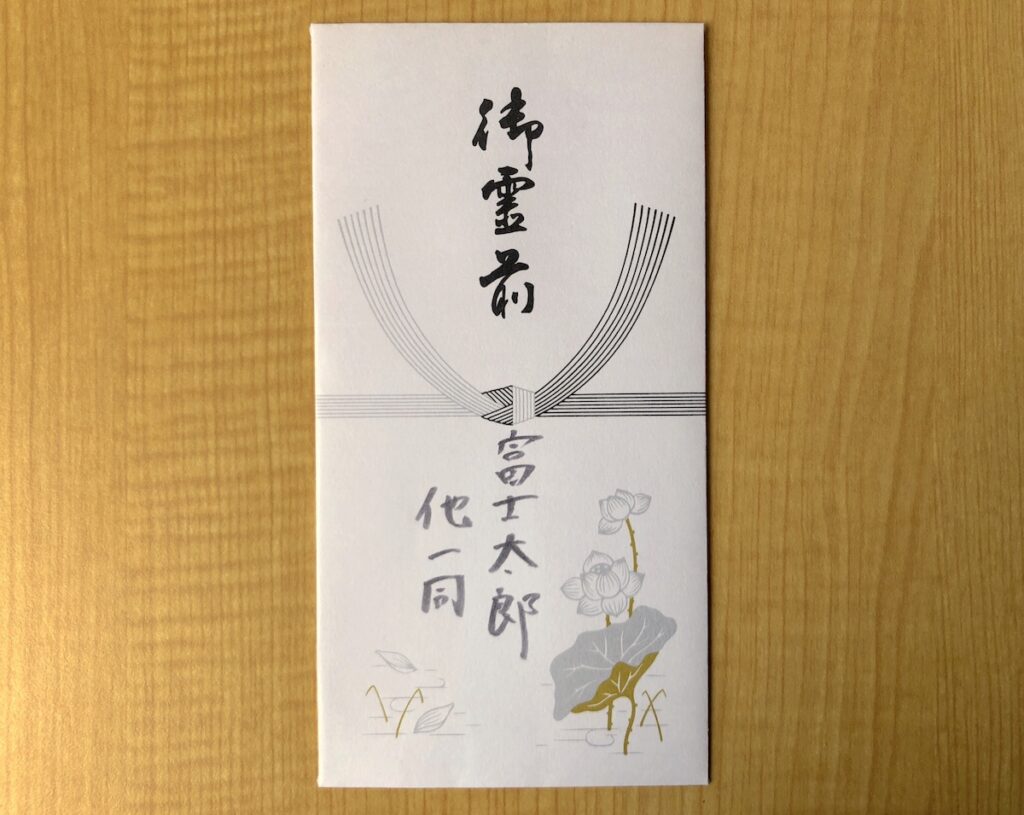 御霊前
富士太郎
他一同